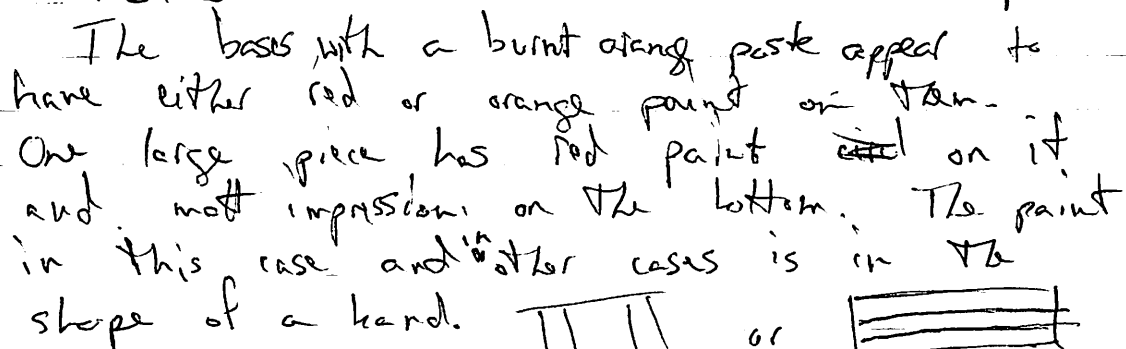 The bases with a burnt orange paste appear to
have either red or orange paint on them.
One large piece has red paint on it
and matt impressions on the bottom. The paint
in this case and in other cases is in the
shape of a band.
or